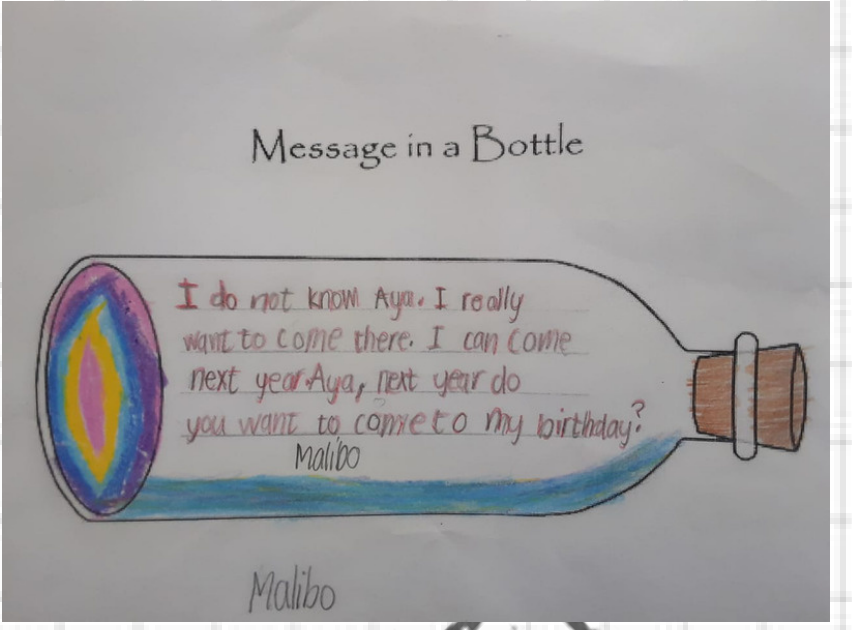 Message in a Bottle
I do not know Aya. I really
want to come there. I can come
next year. Aya, next year do
you want to come to my birthday?
Malibo
Malibo